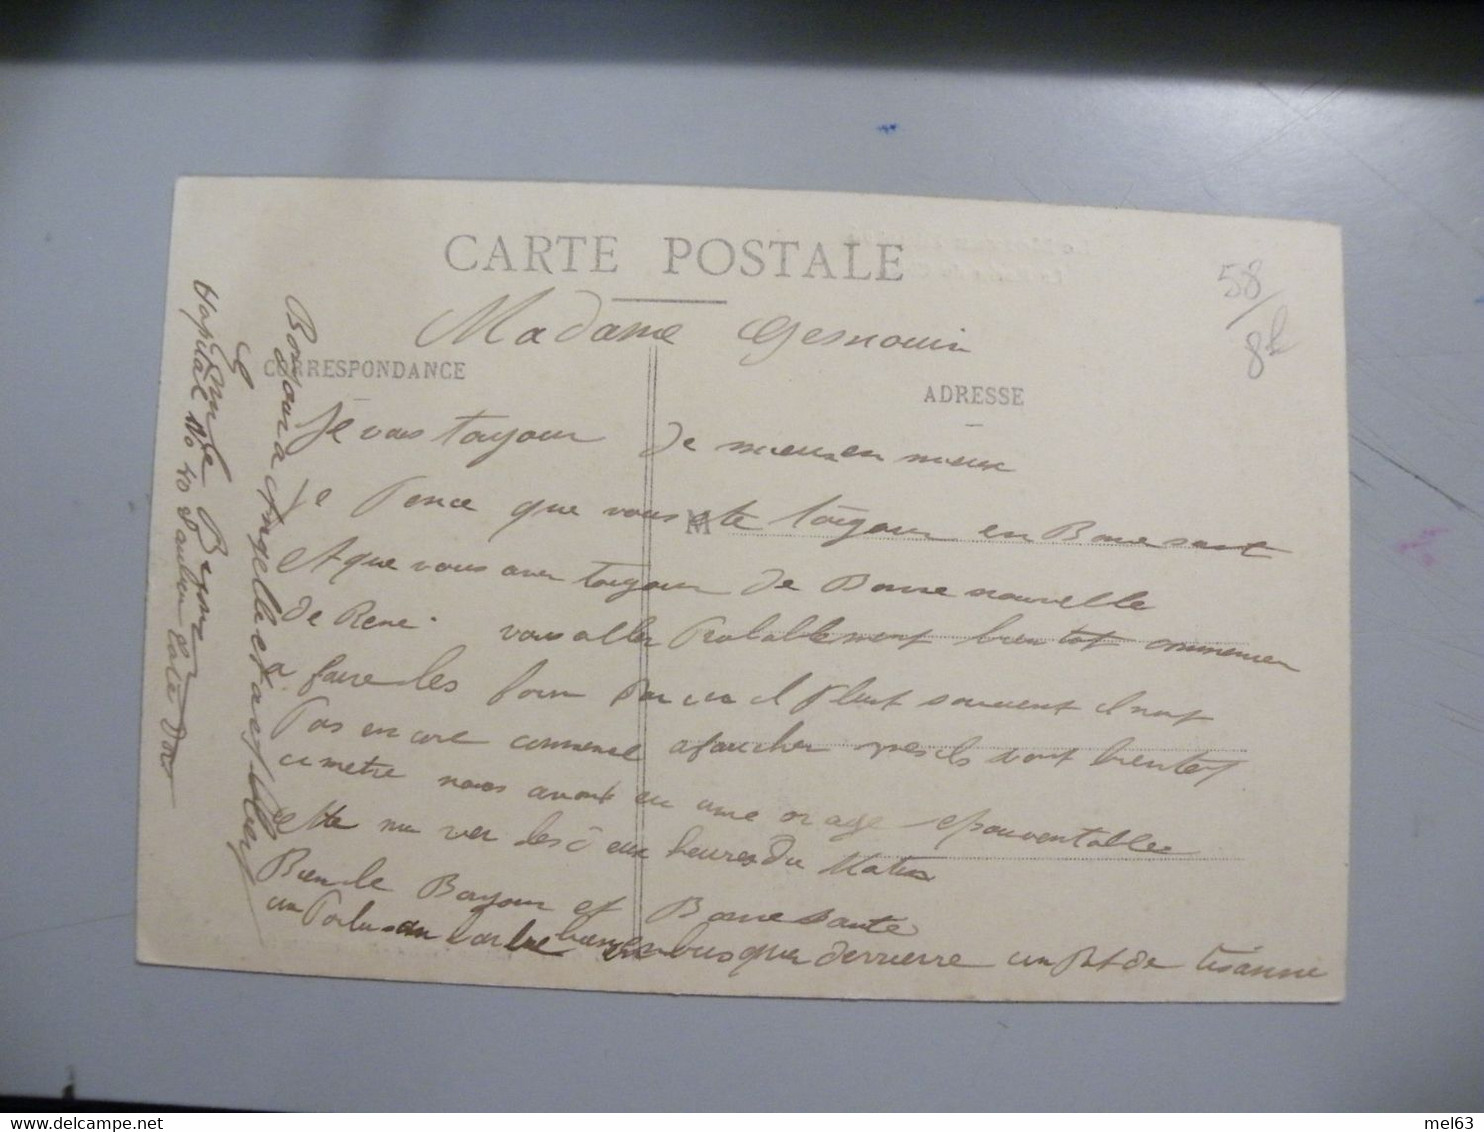 CARTE POSTALE
58/
8h
Madame Gesnouin
CORRESPONDANCE
ADRESSE
Je vais toujour de mieux en mieux
Je Pence que vous ete toigour en Bone sante
M
et que vous aver toujour de Bonne nouvelle
de René. vous aller Probablement bientot commencer
a faire les foin Par un il Pleut souvent il nont
Pas encore commence a faucher mes ils vont bientot
ci metre nous avont eu une orage epouventable
ette nu ver les deux heures du Matin
Bien le Bonjour et Bonne Sante
un Poilu au embusquer derrierre un Pot de tisanne
Bonjour a Angelle et a
Hopital No 40 Saulieu Cote Dor
mel63